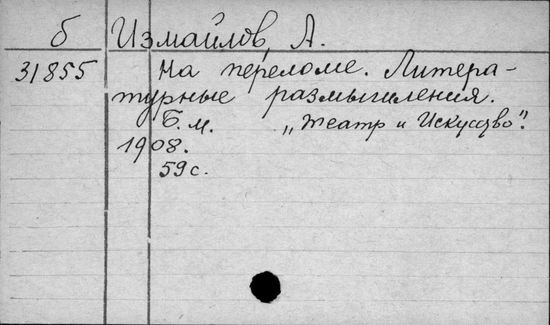 б Измайлов, А.
31855 На переломе. Литера-
турные размышления.
Б.м. „Театр и Искусство".
1908.
59 с.